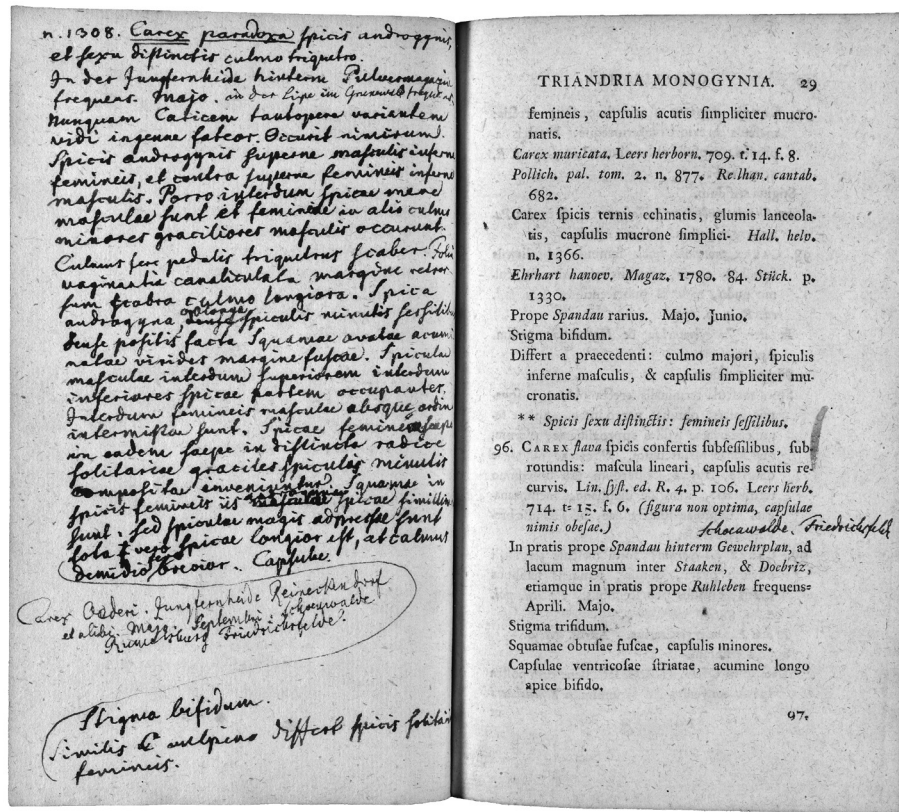 n. 1308. Carex paradoxa spicis androgynis,
et sexu distinctis culmo triquetro.
In der Jungfernheide hinterm Pulvermagazin
frequens. Majo. an der Lipe im Grunewald
Nunquam Caricem tantopere variantem
vidi ingenue fateor. Occurit nimirum
Spicis androgynis superne masculis inferne
femineis, et contra superne femineis inferne
masculis. Porro interdum spicae mere
masculae sunt et femineae in alio culmo
minores graciliores masculis occurunt.
Culmus fere pedalis triquetrus scaber. Folia
vaginantia canaliculata margine retror-
sum scabra culmo longiora. Spica
androgyna, oblonga spiculis minutis sessilibus
dense positis facta Squamae ovatae acumi
natae virides margine fuscae. Spicula
masculae interdum superiorem interdum
inferiores spicae partem occupantes.
Interdum femineis masculae absque ordine
intermistae sunt. Spicae femineae saepe
in eadem saepe in distincta radice
solitariae graciles spiculis minutis
compositae inveniuntur. Squamae in
spicis femineis iis spicae simillimae
sunt. Sed spiculae magis adpressae sunt
tota vero spicae longior est, at culmus
demidio fere brevior. Capsulae.
Carex Oederi. Jungfernheide Reineckendorf
et alibi. Majo. Septembri. Schoenwalde
Rumelsburg Friedrichsfelde?
Stigma bifidum.
Similis C vulpina differt spicis solitariis
femineis.
TRIANDRIA MONOGYNIA. 29
femineis, capſulis acutis ſimpliciter mucro-
natis.
Carex muricata. Leers herborn. 709. t. 14. f. 8.
Pollich. pal. tom. 2. n. 877. Relhan. cantab.
682.
Carex ſpicis ternis echinatis, glumis lanceola-
tis, capſulis mucrone ſimplici. Hall. helv.
n. 1366.
Ehrhart hanoev. Magaz. 1780. 84. Stück. p.
1330.
Prope Spandau rarius. Majo. Junio.
Stigma bifidum.
Differt a praecedenti: culmo majori, ſpiculis
inferne maſculis, & capſulis ſimpliciter mu-
cronatis.
** Spicis ſexu diſtinctis: femineis ſeſſilibus.
96. CAREX flava ſpicis confertis ſubſeſſilibus, ſub-
rotundis: maſcula lineari, capſulis acutis re-
curvis. Lin. ſyſt. ed. R. 4. p. 106. Leers herb.
714. t. 15. f. 6. (figura non optima, capſulae
nimis obeſae.) Schoenwalde. Friedrichsfelde
In pratis prope Spandau hinterm Gewehrplan, ad
lacum magnum inter Staaken, & Doebriz,
etiamque in pratis prope Ruhleben frequens.
Aprili. Majo.
Stigma trifidum.
Squamae obtuſae fuſcae, capſulis minores.
Capſulae ventricoſae ſtriatae, acumine longo
apice bifido.
97.